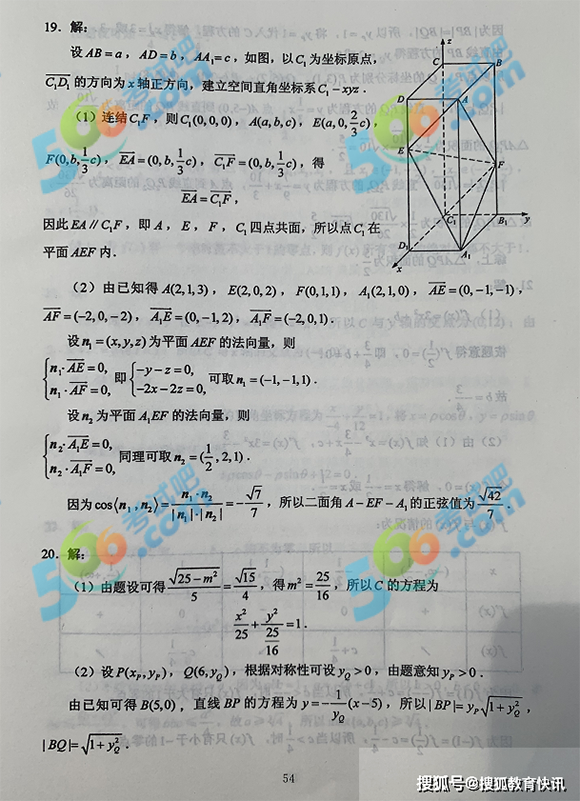 19. 解:
设 AB = a, AD = b, AA₁ = c, 如图, 以 C₁ 为坐标原点,
C₁D₁ 的方向为 x 轴正方向, 建立空间直角坐标系 C₁ - xyz.
(1) 连结 C₁F, 则 C₁(0,0,0), A(a,b,c), E(a,0,2/3c),
F(0,b,1/3c), EA = (0,b,1/3c), C₁F = (0,b,1/3c), 得
EA = C₁F,
因此 EA // C₁F, 即 A, E, F, C₁ 四点共面, 所以点 C₁ 在
平面 AEF 内.
z
C
B
D
A
E
F
C₁
B₁
y
D₁
A₁
x
(2) 由已知得 A(2,1,3), E(2,0,2), F(0,1,1), A₁(2,1,0), AE = (0,-1,-1),
AF = (-2,0,-2), A₁E = (0,-1,2), A₁F = (-2,0,1).
设 n₁ = (x,y,z) 为平面 AEF 的法向量, 则
{n₁·AE = 0, n₁·AF = 0, 即 {-y-z=0, -2x-2z=0, 可取 n₁ = (-1,-1,1).
设 n₂ 为平面 A₁EF 的法向量, 则
{n₂·A₁E = 0, n₂·A₁F = 0, 同理可取 n₂ = (1/2,2,1).
因为 cos⟨n₁,n₂⟩ = n₁·n₂/|n₁|·|n₂| = -√7/7, 所以二面角 A-EF-A₁ 的正弦值为 √42/7.
20. 解:
(1) 由题设可得 √(25-m²)/5 = √15/4, 得 m² = 25/16, 所以 C 的方程为
x²/25 + y²/(25/16) = 1.
(2) 设 P(x_P, y_P), Q(6, y_Q), 根据对称性可设 y_Q > 0, 由题意知 y_P > 0.
由已知可得 B(5,0), 直线 BP 的方程为 y = -1/y_Q(x-5), 所以 |BP| = y_P√(1+y_Q²),
|BQ| = √(1+y_Q²).
54
566考试吧
.com
566考试吧
.com
搜狐号@搜狐教育快讯